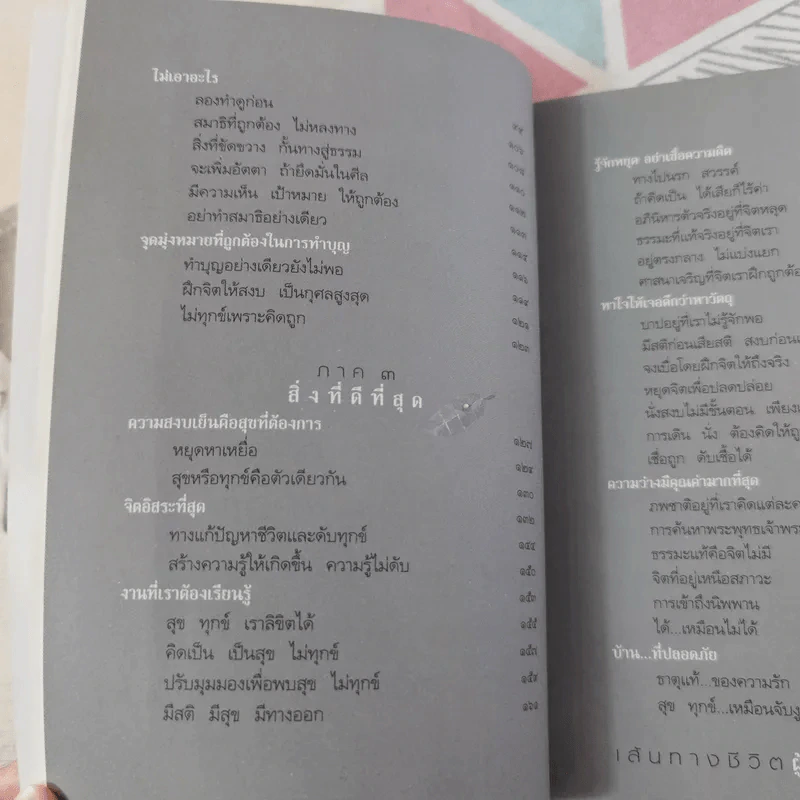 ไม่เอาอะไร
ลองทำดูก่อน ๙๙
สมาธิที่ถูกต้อง ไม่หลงทาง ๑๐๖
สิ่งที่ขัดขวาง กั้นทางสู่ธรรม
จะเพิ่มอัตตา ถ้ายึดมั่นในศีล ๑๑๐
มีความเห็น เป้าหมาย ให้ถูกต้อง ๑๑๒
อย่าทำสมาธิอย่างเดียว ๑๑๓
จุดมุ่งหมายที่ถูกต้องในการทำบุญ
ทำบุญอย่างเดียวยังไม่พอ ๑๑๖
ฝึกจิตให้สงบ เป็นกุศลสูงสุด
ไม่ทุกข์เพราะคิดถูก ๑๒๑
๑๒๓
ภาค ๓
สิ่งที่ดีที่สุด
ความสงบเย็นคือสุขที่ต้องการ ๑๒๗
หยุดหาเหยื่อ
สุขหรือทุกข์คือตัวเดียวกัน ๑๓๐
จิตอิสระที่สุด ๑๓๒
ทางแก้ปัญหาชีวิตและดับทุกข์
สร้างความรู้ให้เกิดขึ้น ความรู้ไม่ดับ ๑๕๐
งานที่เราต้องเรียนรู้ ๑๕๓
สุข ทุกข์ เราลิขิตได้ ๑๕๕
คิดเป็น เป็นสุข ไม่ทุกข์ ๑๕๗
ปรับมุมมองเพื่อพบสุข ไม่ทุกข์ ๑๕๙
มีสติ มีสุข มีทางออก ๑๖๑
รู้จักหยุด อย่าเชื่อความผิด
ทางไปนรก สวรรค์
ถ้าคิดเป็น ได้เสียก็ไร้ค่า
อภินิหารตัวจริงอยู่ที่จิตหลุด
ธรรมะที่แท้จริงอยู่ที่จิตเรา
อยู่ตรงกลาง ไม่แบ่งแยก
ศาสนาเจริญที่จิตเราฝึกถูกต้อ
หาใจให้เจอดีกว่าหาวัตถุ
บาปอยู่ที่เราไม่รู้จักพอ
มีสติก่อนเสียสติ สงบก่อน
จงเบื่อโดยฝึกจิตให้ถึงจริง
หยุดจิตเพื่อปลดปล่อย
นั่งสงบไม่มีขั้นตอน เพียง
การเดิน นั่ง ต้องคิดให้ถู
เชื่อถูก ดับเชื้อได้
ความว่างมีคุณค่ามากที่สุด
ภพชาติอยู่ที่เราคิดแต่ละค
การค้นหาพระพุทธเจ้าพระ
ธรรมะแท้คือจิตไม่มี
จิตที่อยู่เหนือสภาวะ
การเข้าถึงนิพพาน
ได้...เหมือนไม่ได้
บ้าน...ที่ปลอดภัย
ธาตุแท้...ของความรัก
สุข ทุกข์...เหมือนจับงู
เส้นทางชีวิต